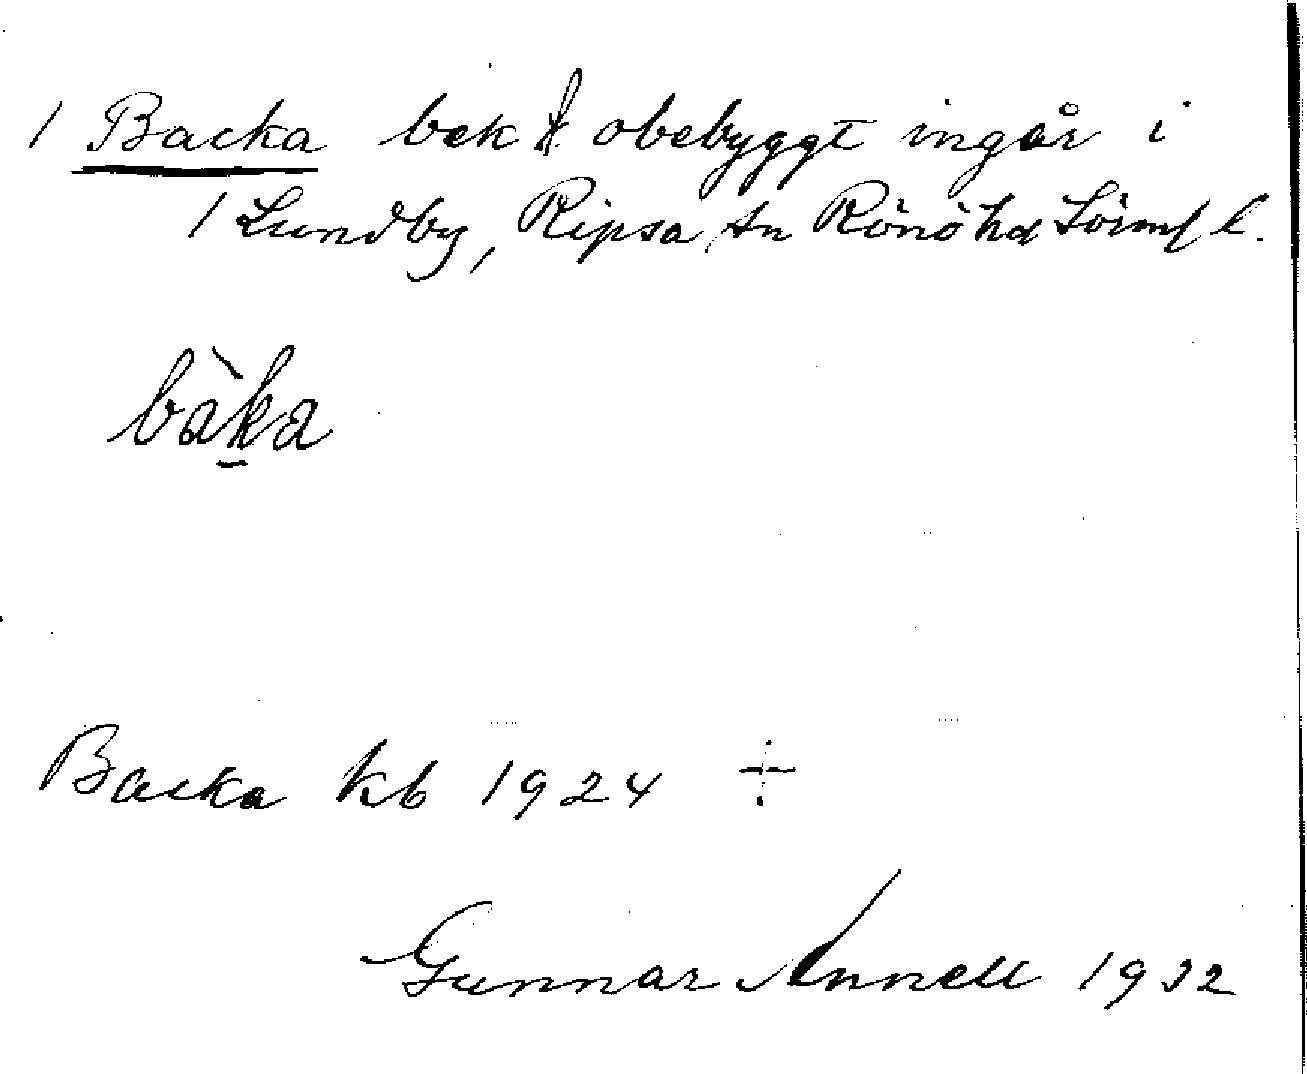 1 Backa bek f obebyggt ingår i
1 Lundby, Ripsa sn Rönö hd Sörml l.
bàk̠a
Backa kb 1924 ÷
Gunnar Annell 1932